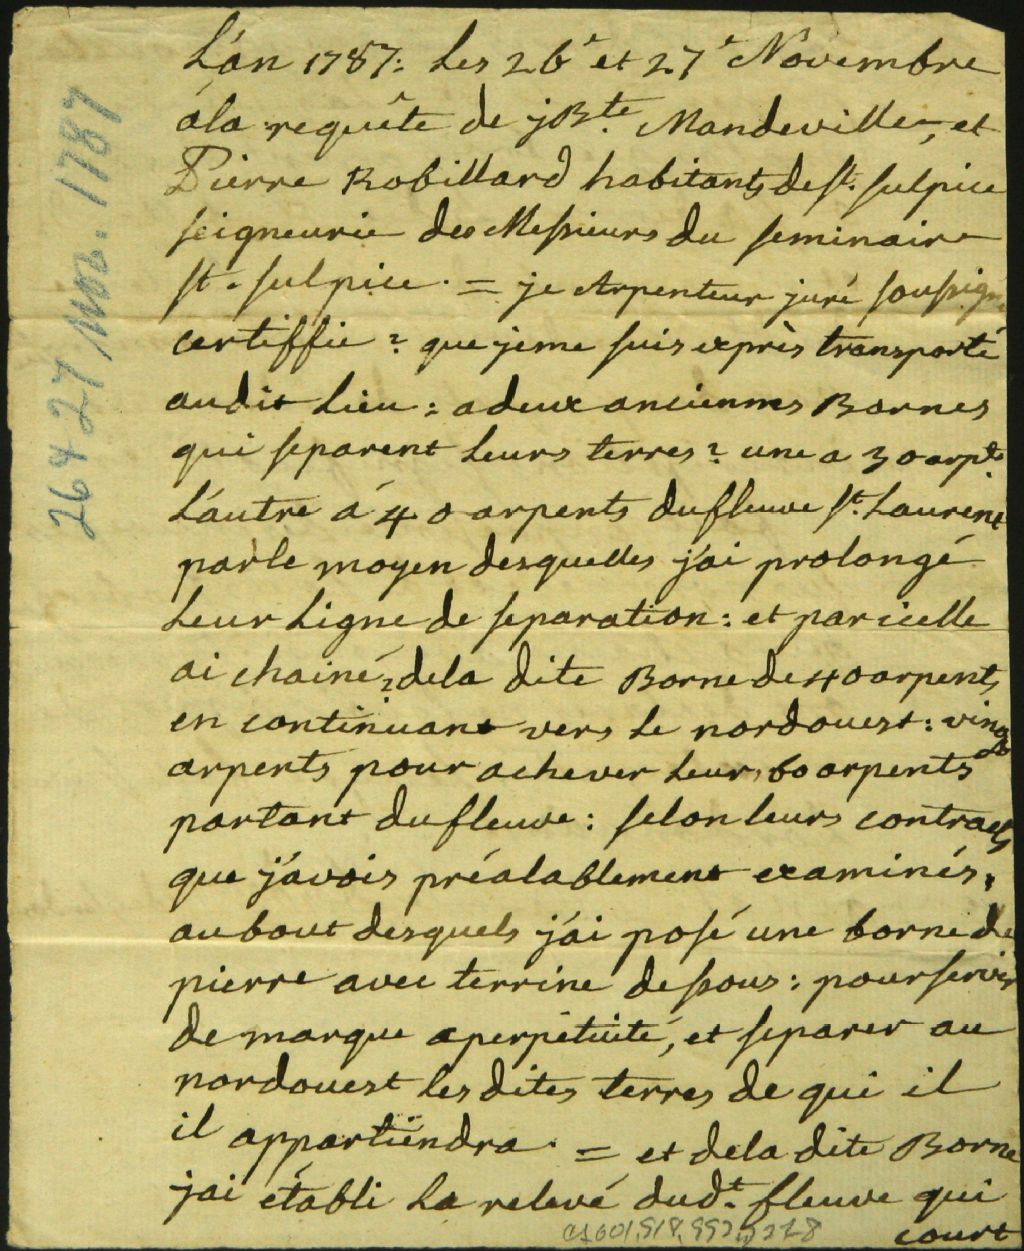 L'án 1787: Les 26e et 27e Novembre
ála requête de jBte. Mandeville, et
Pierre Robillard habitants de st. sulpice
seigneurie des Messieurs du seminaire
st. sulpice. = je Arpenteur juré soussigné
certiffie? que jeme suis exprès transporté
audit Lieu: a deux anciennes Bornes
qui separent Leurs terres? une a 30 arpts
L'autre á 40 arpents dufleuve st. Laurent
parle moyen desquelles j'ai prolongé
Leur Ligne de separation: et par icelle
ai chainé? dela dite Borne de 40 arpents
en continuant vers le nordouest: vingt
arpents pour achever Leurs 60 arpents
partant dufleuve: selon leurs contracts
que j'avois préalablement examinés,
aubout desquels j'ai posé une borne de
pierre avec terrine dessous: pour servir
de marque a perpétuité, et separer au
nordouest les dites terres de qui il
il appartiendra. = et dela dite Borne
jai établi La relevé dudt. fleuve qui
court
26 & 27 Nov. 1787